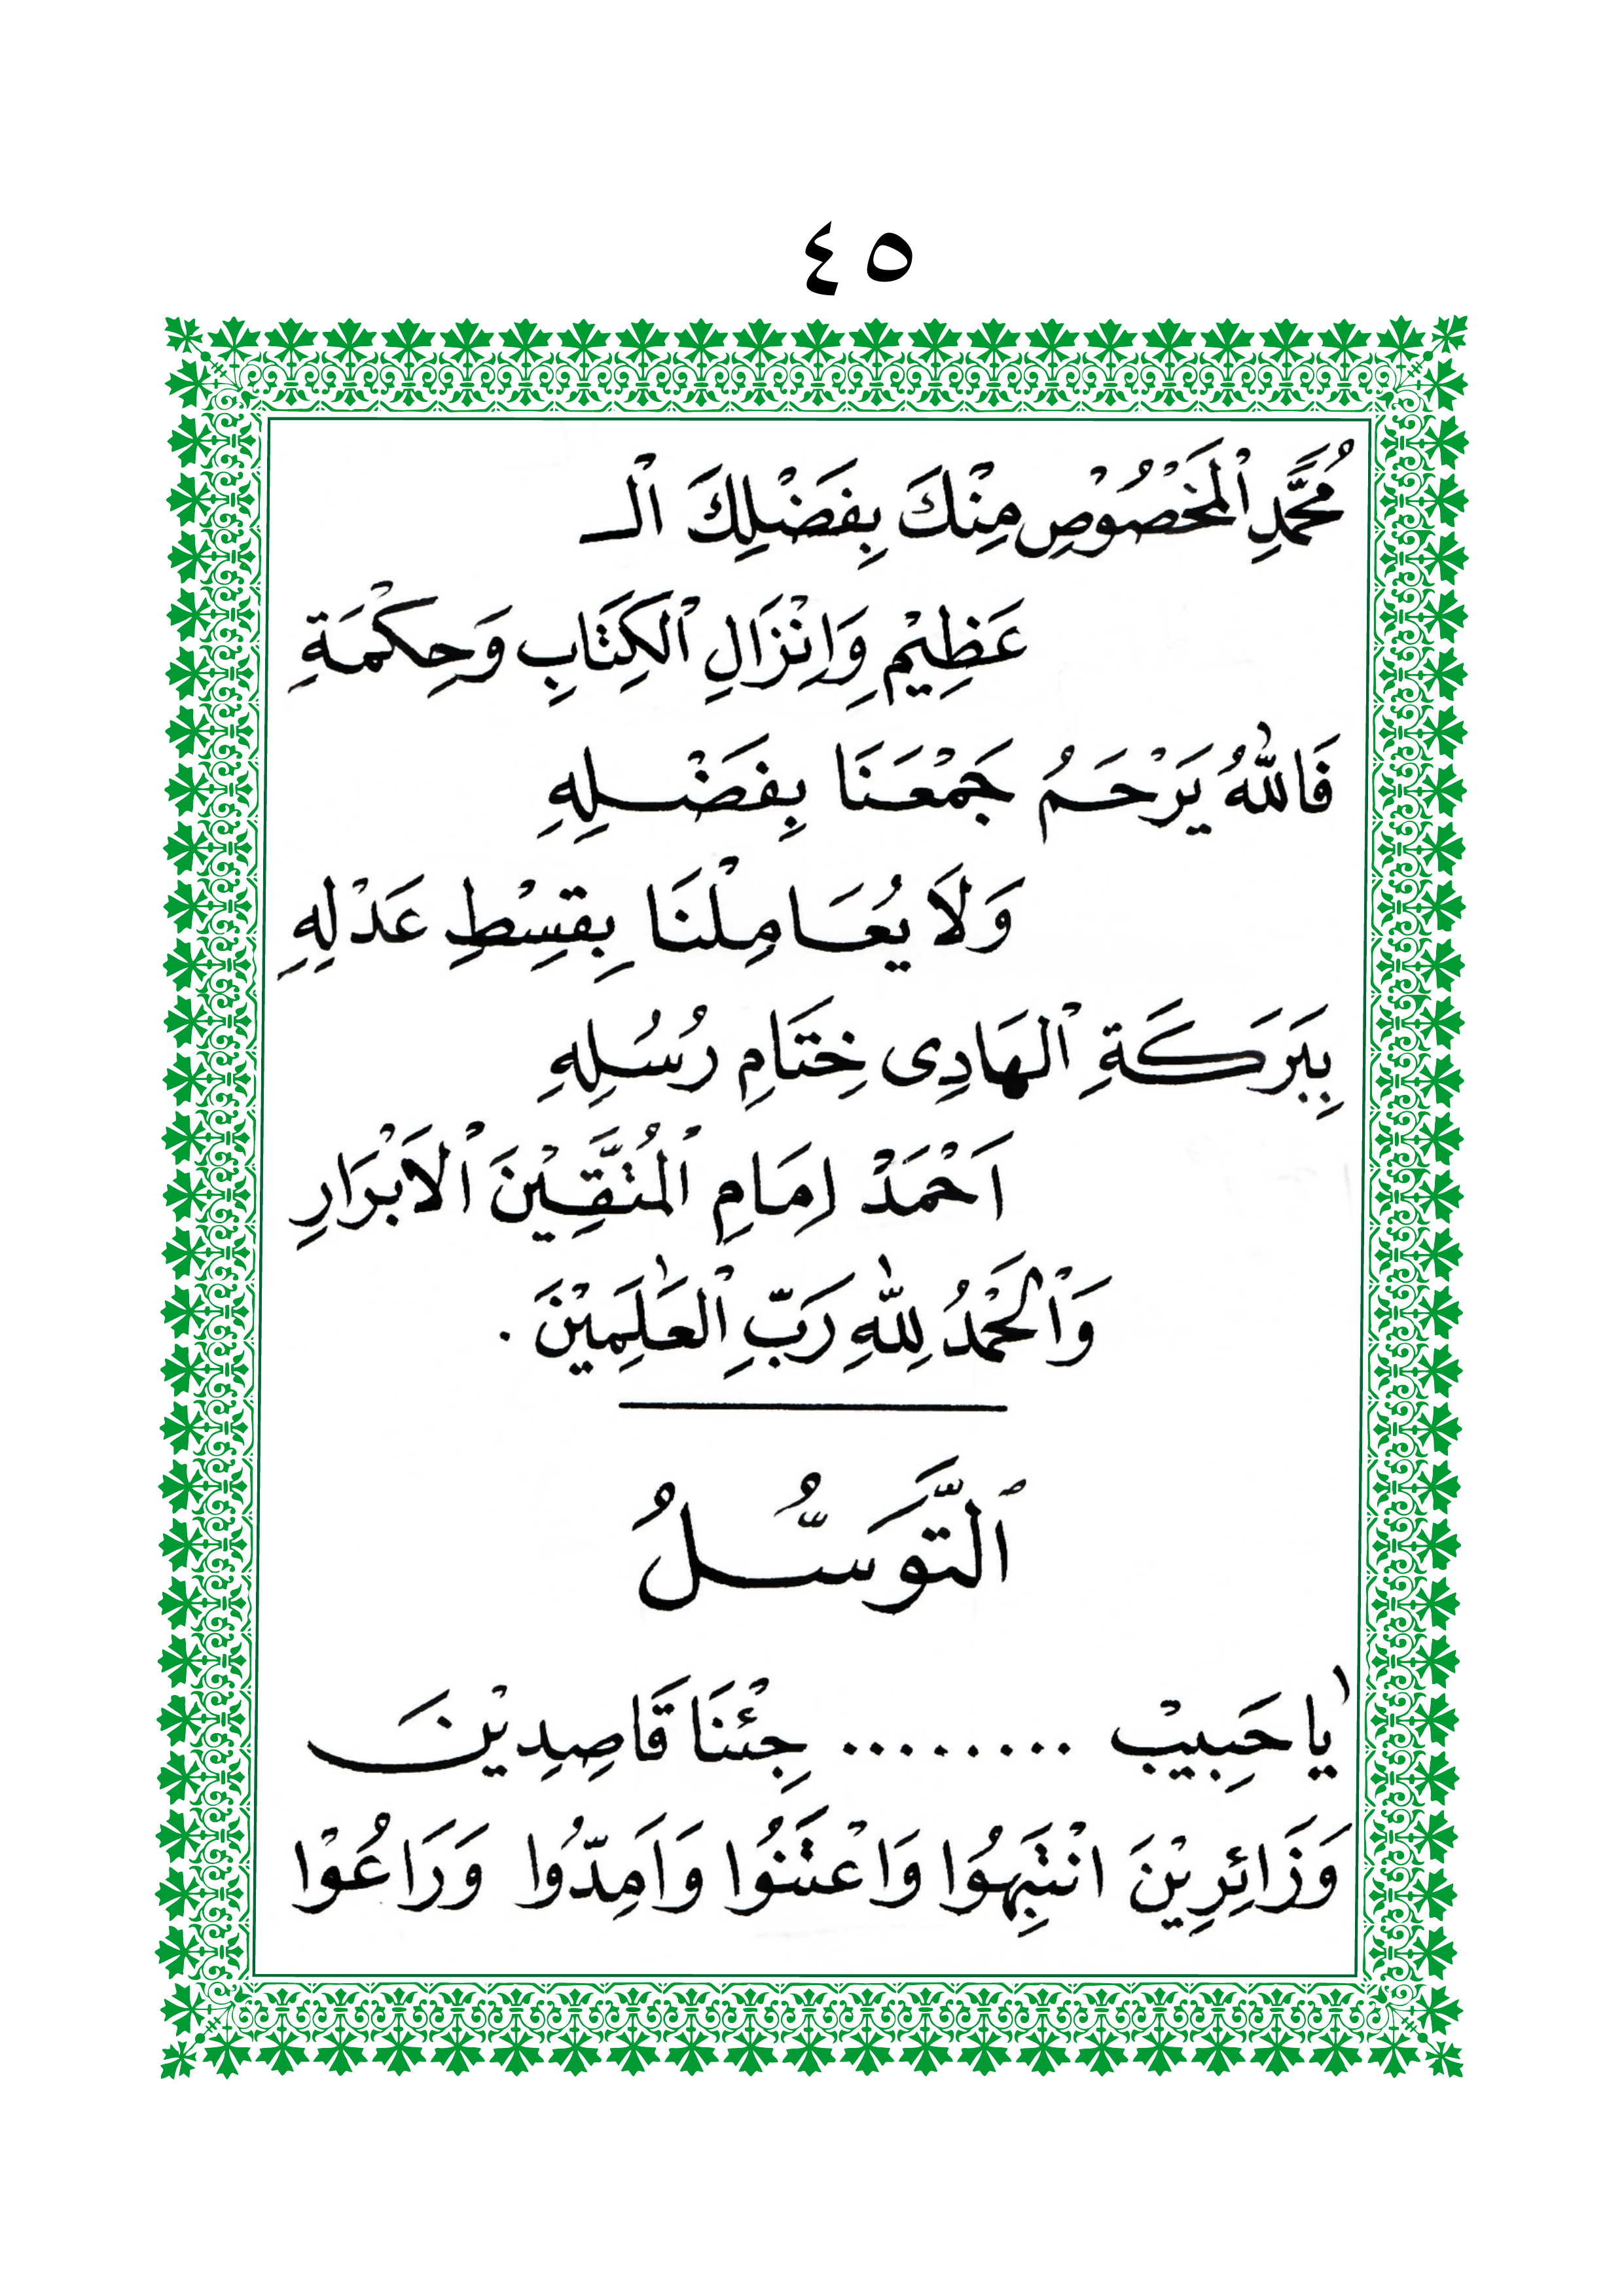 ٤٥
مُحَمَّدِ ٱلْمَخْصُوْصِ مِنْكَ بِفَضْلِكَ الْـ
عَظِيْمِ وَاِنْزَالِ ٱلكِتَابِ وَحِكْمَةِ
فَاللّٰهُ يَرْحَمُ جَمْعَنَا بِفَضْلِهِ
وَلَا يُعَامِلْنَا بِقِسْطِ عَدْلِهِ
بِبَرَكَةِ ٱلهَادِى خِتَامِ رُسُلِهِ
اَحْمَدْ اِمَامِ ٱلمُتَّقِيْنَ ٱلاَبْرَارِ
وَٱلحَمْدُ لِلّٰهِ رَبِّ ٱلعَالَمِيْنَ .
ٱلتَّوَسُّلُ
يٰا حَبِيبْ ......... جِئْنَا قَاصِدِيْنَ
وَزَائِرِيْنَ انْتَبِهُوا وَاعْتَنُوا وَاَمِدّوُا وَرَاعُوْا